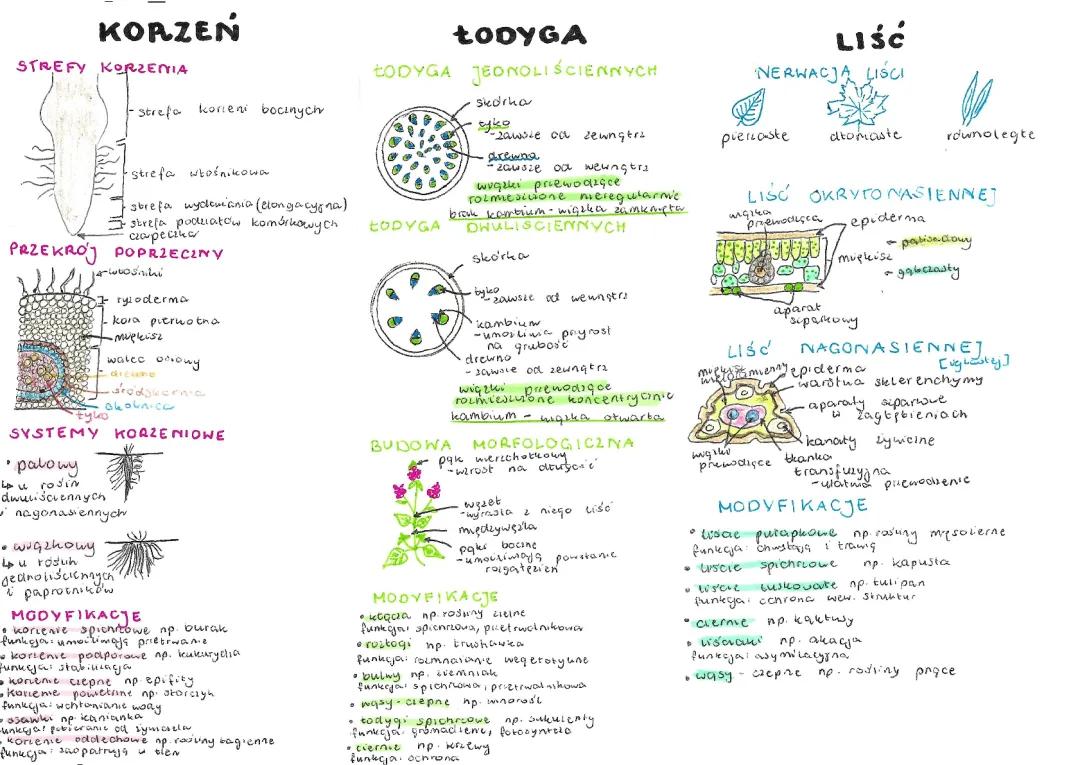 KORZEŃ
STREFY KORZENIA
strefa korzeni bocznych
strefa włośnikowa
strefa wydłużania (elongacyjna)
strefa podziałów komórkowych
czapeczka
PRZEKRÓJ POPRZECZNY
włośniki
ryzoderma
kora pierwotna
miękisz
walec osiowy
drewno
śródskórnia
okolnica
łyko
SYSTEMY KORZENIOWE
• palowy
↳ u roślin
dwuliściennych
i nagonasiennych
• wiązkowy
↳ u roślin
jednoliściennych
i paprotników
MODYFIKACJE
• korzenie spichrzowe np. burak
funkcja: umożliwiają przetrwanie
• korzenie podporowe np. kukurydza
funkcja: stabilizacja
• korzenie czepne np. epifity
• korzenie powietrzne np. storczyk
funkcja: wchłanianie wody
• ssawki np. kanianka
funkcja: pobieranie od żywiciela
• korzenie oddechowe np. rośliny bagienne
funkcja: zaopatrują w tlen
ŁODYGA
ŁODYGA JEDNOLIŚCIENNYCH
skórka
łyko
- zawsze od zewnątrz
drewno
- zawsze od wewnątrz
wiązki przewodzące
rozmieszczone nieregularnie
brak kambium - wiązka zamknięta
ŁODYGA DWULIŚCIENNYCH
skórka
łyko
- zawsze od wewnątrz
kambium
- umożliwia przyrost
na grubość
drewno
- zawsze od zewnątrz
wiązki przewodzące
rozmieszczone koncentrycznie
kambium - wiązka otwarta
BUDOWA MORFOLOGICZNA
pąk wierzchołkowy
- wzrost na długość
węzeł
- wyrasta z niego liść
międzywęźla
pąki boczne
- umożliwiają powstanie
rozgałęzień
MODYFIKACJE
• kłącza np. rośliny zielne
funkcja: spichrzowa, przetrwalnikowa
• rozłogi np. truskawka
funkcja: rozmnażanie wegetatywne
• bulwy np. ziemniak
funkcja: spichrzowa, przetrwalnikowa
• wąsy czepne np. winorośl
• łodygi spichrzowe np. sukulenty
funkcja: gromadzenie, fotosynteza
• ciernie np. krzewy
funkcja: ochrona
LIŚĆ
NERWACJA LIŚCI
pierzaste dłoniaste równoległe
LIŚĆ OKRYTONASIENNEJ
wiązka
przewodząca
epiderma
miękisz
- palisadowy
- gąbczasty
aparat
szparkowy
LIŚĆ NAGONASIENNEJ
[iglasty]
miękisz
wieloramienny
epiderma
warstwa sklerenchymy
aparaty szparkowe
w zagłębieniach
kanały żywiczne
wiązki
przewodzące
tkanka
transfuzyjna
- ułatwia przewodzenie
MODYFIKACJE
• liście pułapkowe np. rośliny mięsożerne
funkcja: chwytają i trawią
• liście spichrzowe np. kapusta
• liście łuskowate np. tulipan
funkcja: ochrona wew. struktur
• ciernie np. kaktusy
• liściaki np. akacja
funkcja: asymilacyjna
• wąsy - czepne np. rośliny pnące